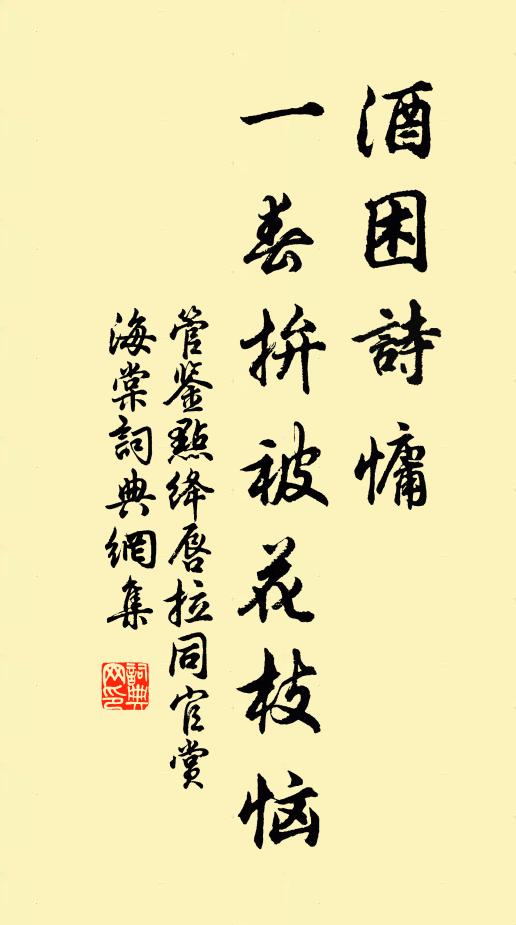 酒困詩慵
一春拚被花枝恼
管鉴點絳唇拉同官賞
海棠詞典網集
詞典网印